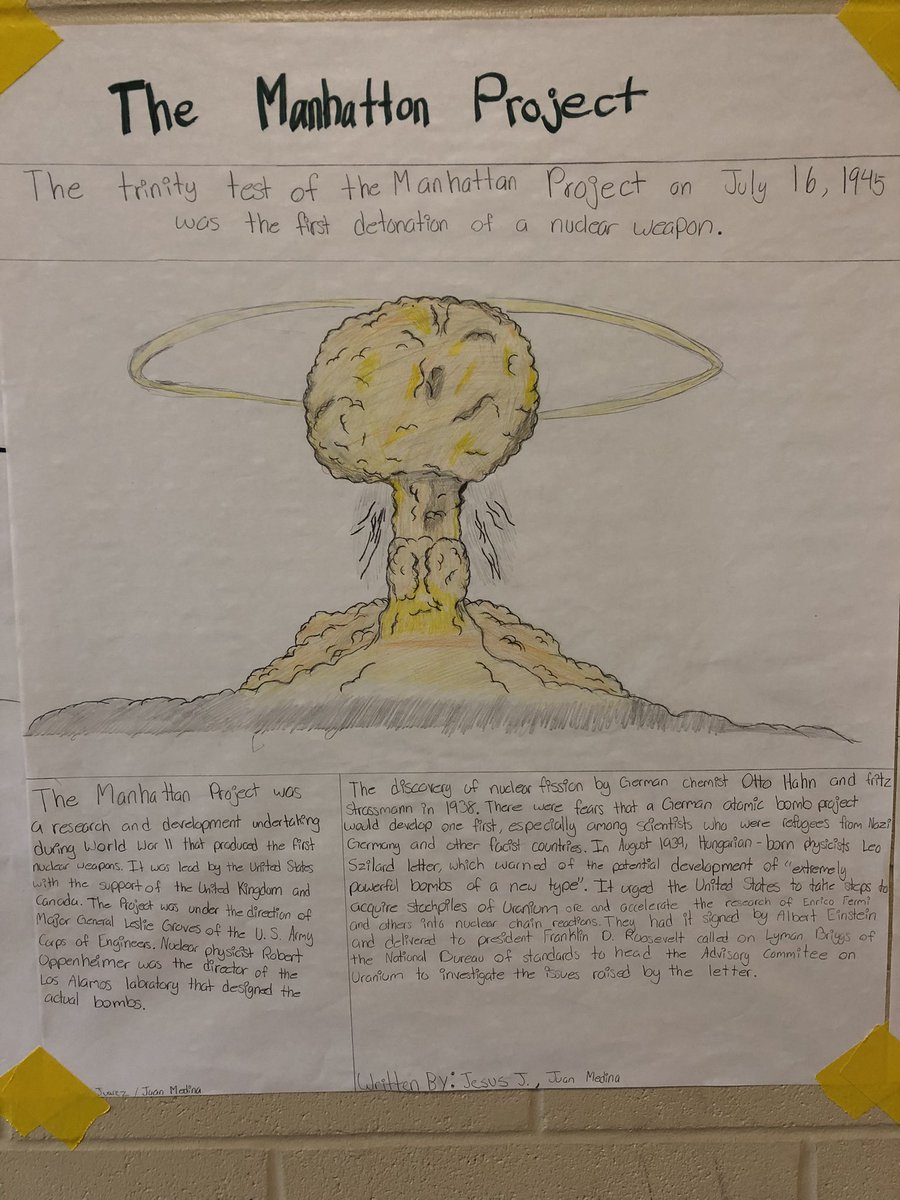 The Manhatton Project
The trinity test of the Manhattan Project on July 16, 1945
was the first detonation of a nuclear weapon.
The Manhattan Project was
a research and development undertaking
during World War II that produced the first
nuclear weapons. It was lead by the United States
with the support of the United Kingdom and
Canada. The Project was under the direction of
Major General Leslie Groves of the U.S. Army
Corps of Engineers. Nuclear physicist Robert
Oppenheimer was the director of the
Los Alamos labratory that designed the
actual bombs.
The discovery of nuclear fission by German chemist Otto Hahn and fritz
Strassmann in 1938. There were fears that a German atomic bomb project
would develop one first, especially among scientists who were refugees from Nazi
Germany and other facist countries. In August 1939, Hungarian-born physicists Leo
Szilard letter, which warned of the potential development of "extremely
powerful bombs of a new type". It urged the United States to take steps to
acquire stockpiles of Uranium ore and accelerate the research of Enrico Fermi
and others into nuclear chain reactions. They had it signed by Albert Einstein
and delivered to president Franklin D. Roosevelt called on Lyman Briggs of
the National Bureau of standards to head the Advisory Commitee on
Uranium to investigate the issues raised by the letter.
/ Juan Medina
Written By: Jesus J., Juan Medina